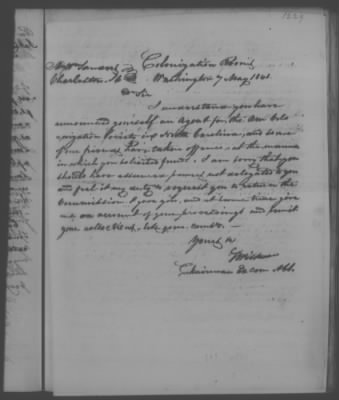 1229
Colonization Rooms
Charleston, S C Washington 7 May 1841
Dr Sir
I understand you have
announced yourself an Agent for the Am Colo
nization Society in North Carolina, and some
of our friends have taken offence at the manner
in which you solicited funds. I am sorry that you
should have assumed powers not delegated to you
and feel it my duty to request you to return the
Commission I gave you, and at same time give
me an account of your proceedings and remit
your collections, also your
Yours &c
Wilkeson
Chairman Ex Com